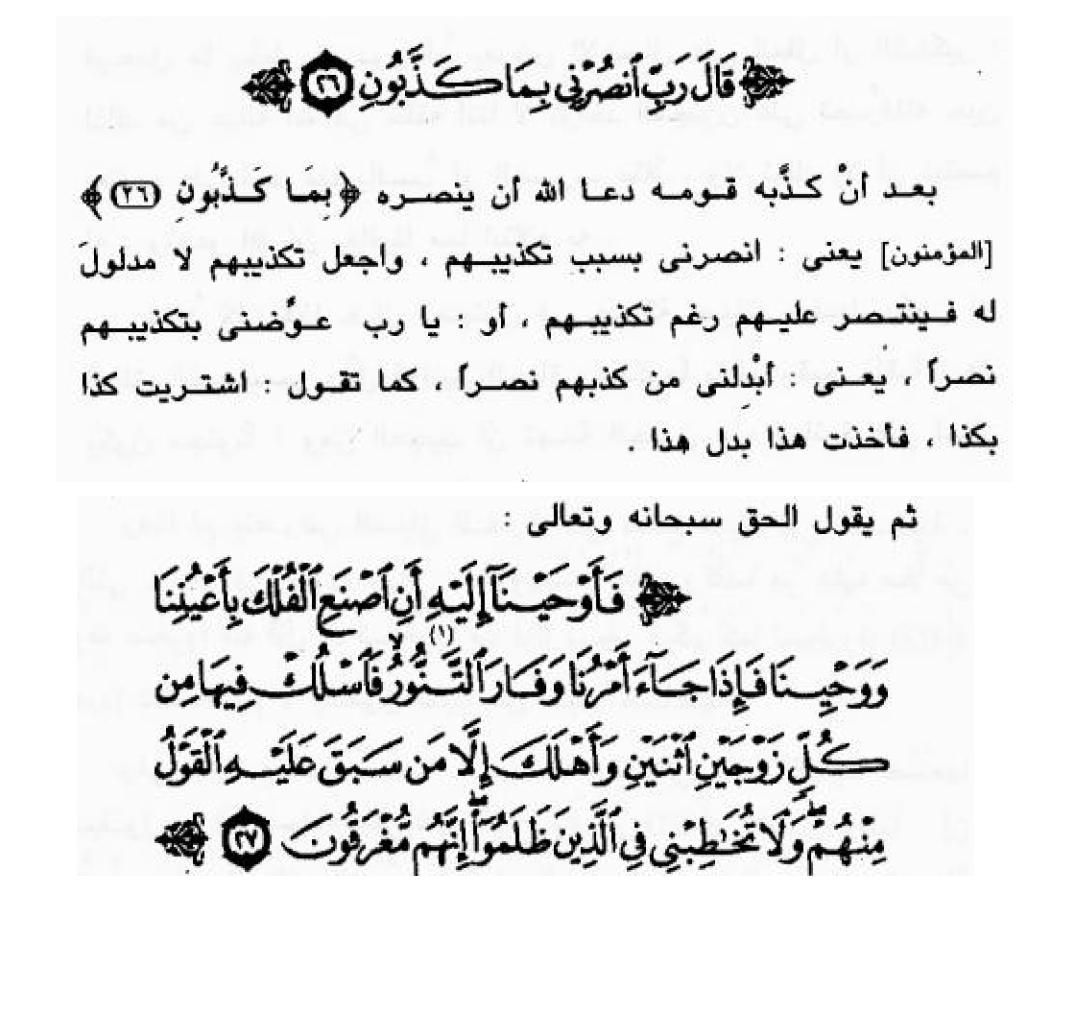 قَالَ رَبِّ ٱنصُرْنِى بِمَا كَذَّبُونِ ٢٦
بعد أنْ كذَّبه قومه دعا الله أن ينصره ﴿ بِمَا كَذَّبُونِ (٢٦) ﴾
[المؤمنون] يعنى : انصرنى بسبب تكذيبهم ، واجعل تكذيبهم لا مدلولَ
له فينتصر عليهم رغم تكذيبهم ، أو : يا رب عوَّضنى بتكذيبهم
نصراً ، يعنى : أبْدِلنى من كذبهم نصراً ، كما تقول : اشتريت كذا
بكذا ، فأخذت هذا بدل هذا .
ثم يقول الحق سبحانه وتعالى :
فَأَوْحَيْنَآ إِلَيْهِ أَنِ ٱصْنَعِ ٱلْفُلْكَ بِأَعْيُنِنَا
وَوَحْيِنَا فَإِذَا جَآءَ أَمْرُنَا وَفَارَ ٱلتَّنُّورُ (١) فَٱسْلُكْ فِيهَا مِن
كُلٍّ زَوْجَيْنِ ٱثْنَيْنِ وَأَهْلَكَ إِلَّا مَن سَبَقَ عَلَيْهِ ٱلْقَوْلُ
مِنْهُمْ ۖ وَلَا تُخَٰطِبْنِى فِى ٱلَّذِينَ ظَلَمُوٓا۟ ۖ إِنَّهُم مُّغْرَقُونَ ٢٧